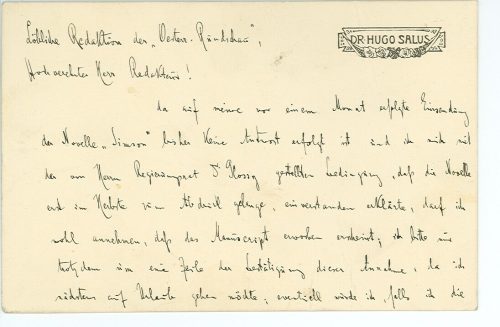 Löbliche Redaktion der „Oesterr. Rundschau",
DR HUGO SALUS
Hochverehrter Herr Redakteur!
da auf meine vor einem Monat erfolgte Einsendung
der Novelle „Simson" bisher keine Antwort erfolgt ist und ich mich mit
der von Herrn Regierungsrat Dr Glossy gestellten Bedingung, daß die Novelle
erst im Herbste zum Abdruck gelange, einverstanden erklärte, darf ich
wohl annehmen, daß das Manuscript erworben erscheint; ich bitte nur
trotzdem um eine Zeile der Bestätigung dieser Annahme, da ich
nächstens auf Urlaub gehen möchte, eventuell würde ich, falls ich die